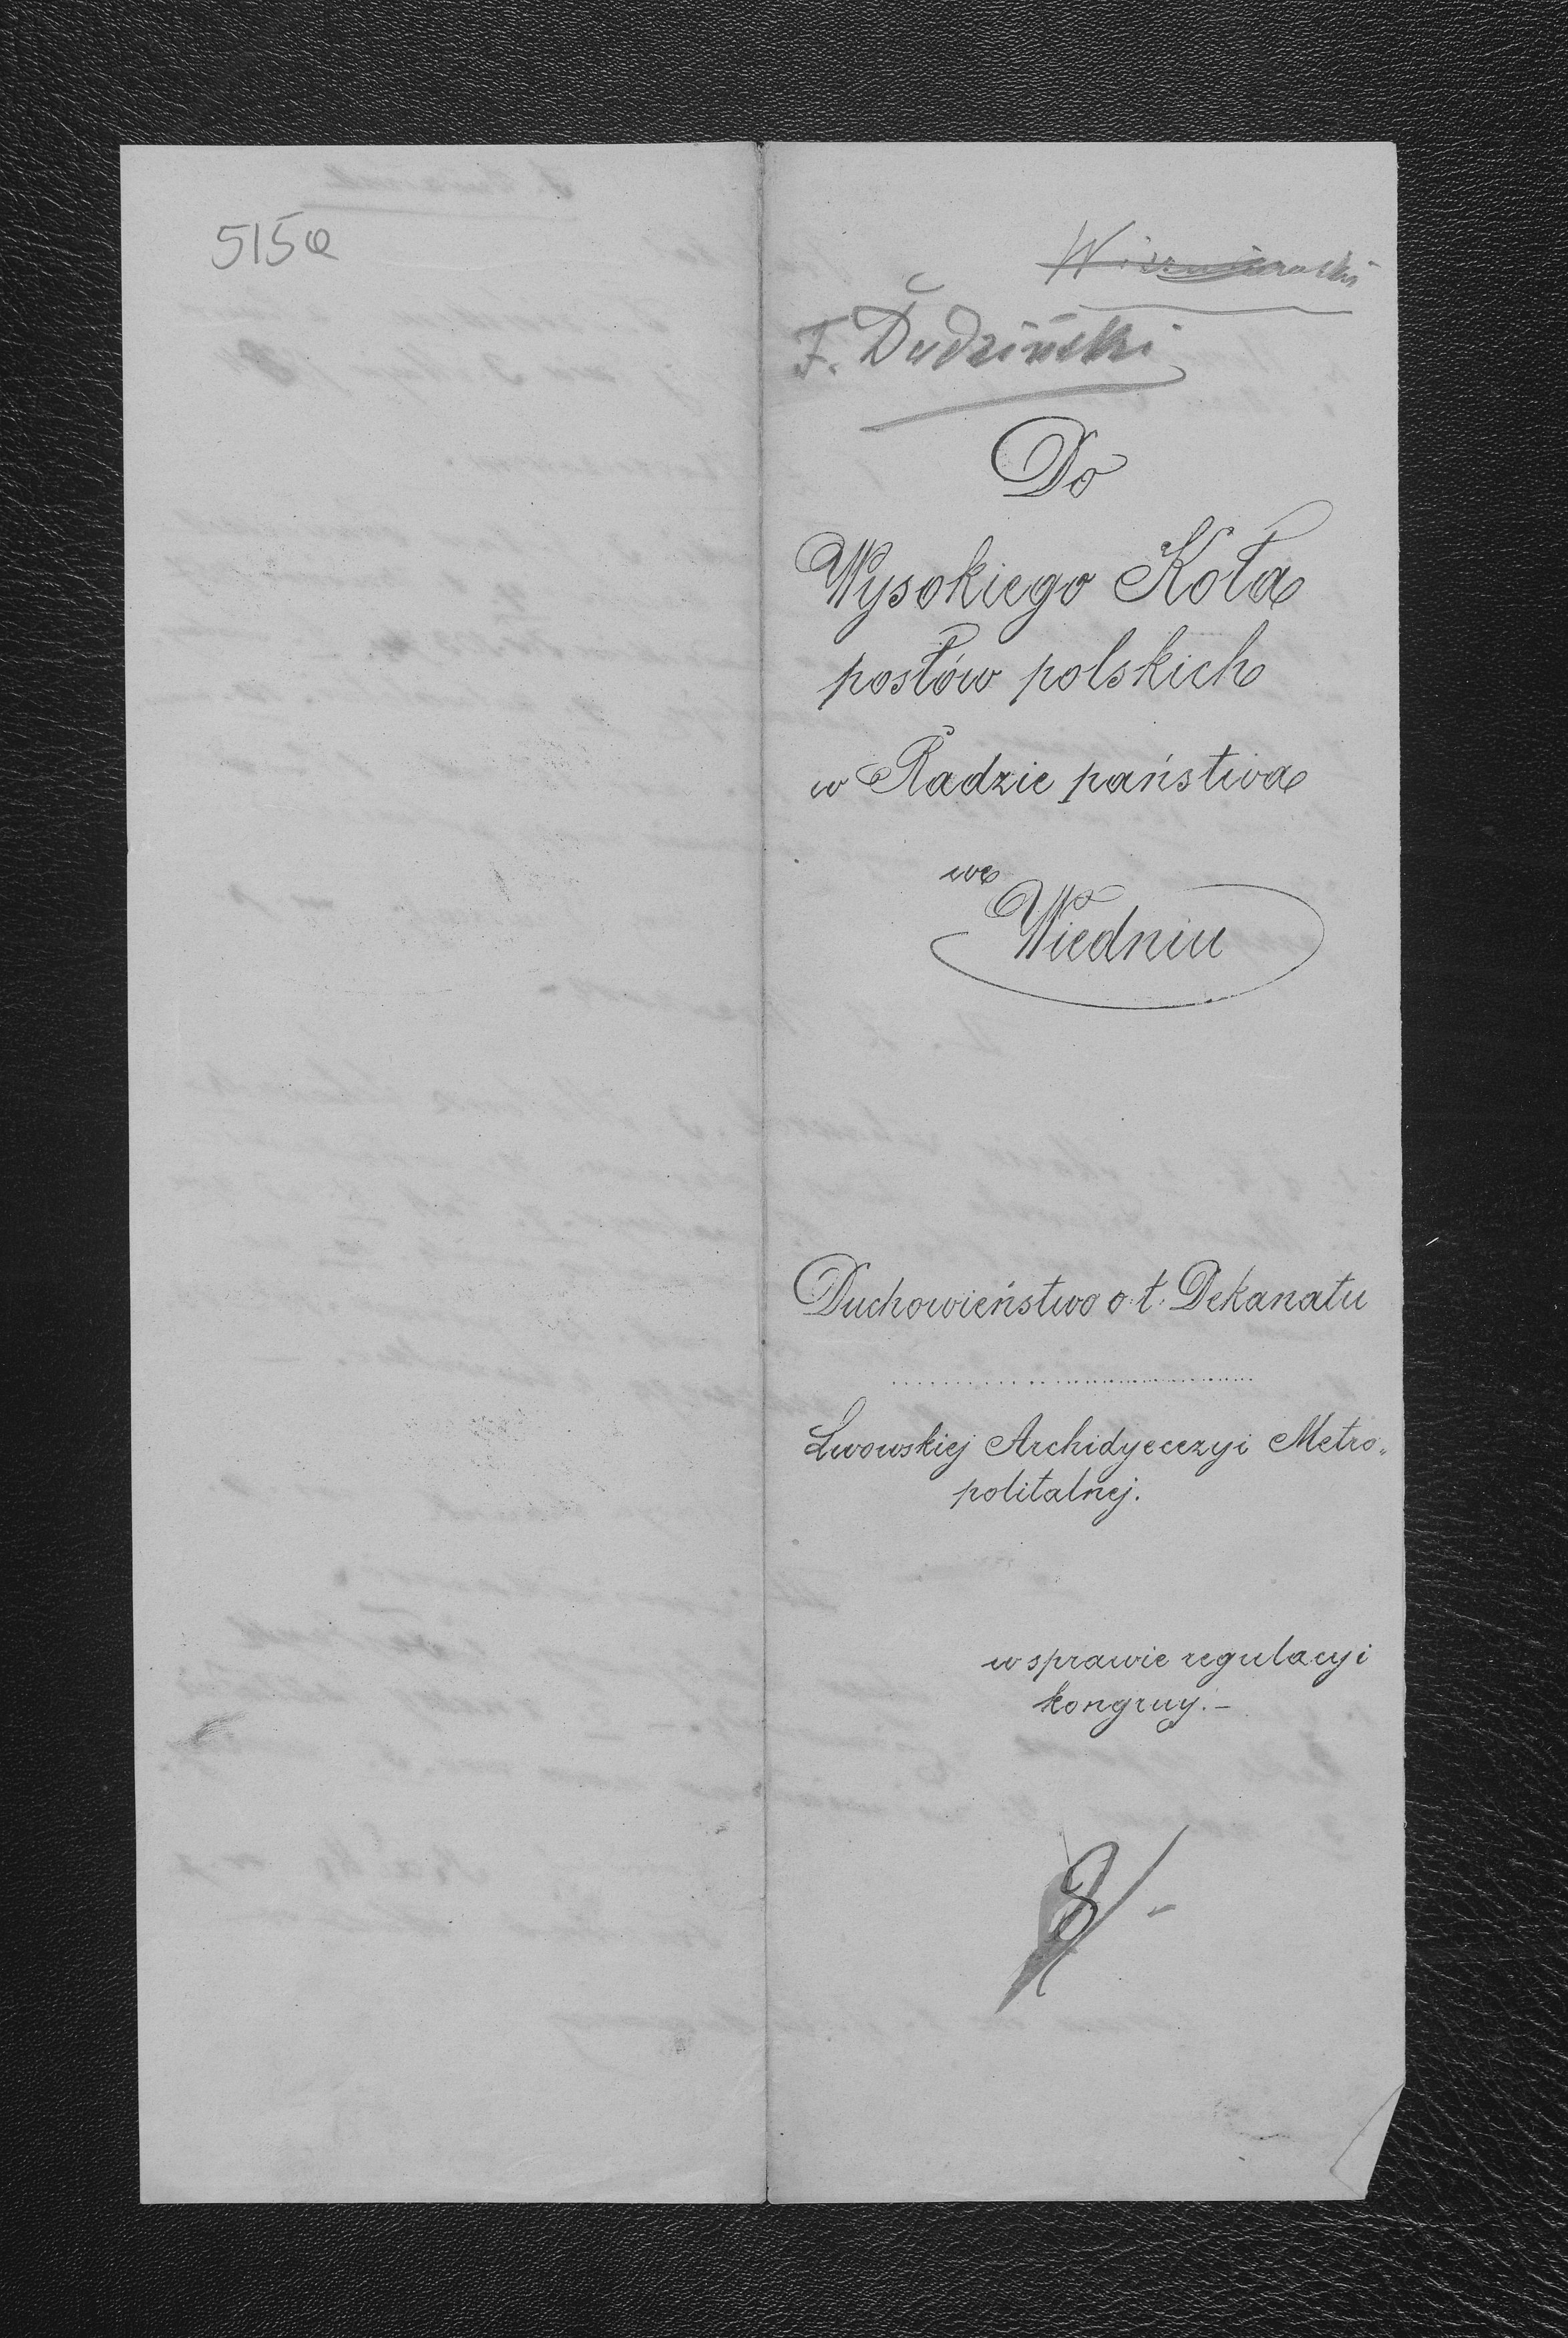 515a
F. Dudziński
Do
Wysokiego Koła
posłów polskich
w Radzie państwa
we
Wiedniu
Duchowieństwo o. t. Dekanatu
..............................
Lwowskiej Archidyecezyi Metro„
politalnej.
w sprawie regulacyi
kongruy.–